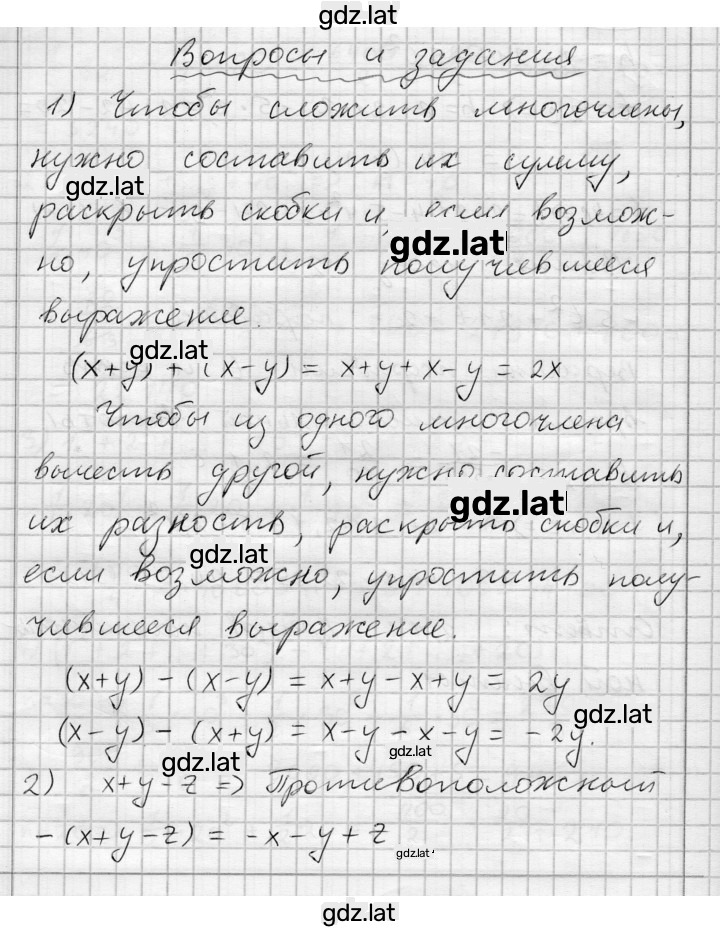 gdz.lat
Вопросы и задания
1) Чтобы сложить многочлены,
нужно составить их сумму,
gdz.lat
раскрыть скобки и, если возмож-
gdz.lat
но, упростить получившееся
выражение.
gdz.lat
(x+y) + (x-y) = x+y+x-y = 2x
Чтобы из одного многочлена
вычесть другой, нужно составить
gdz.lat
их разность, раскрыть скобки и,
gdz.lat
если возможно, упростить полу-
чившееся выражение.
(x+y) - (x-y) = x+y-x+y = 2y
gdz.lat
(x-y) - (x+y) = x-y-x-y = -2y.
gdz.lat
gdz.lat
2) x+y-z => Противоположный
-(x+y-z) = -x-y+z
gdz.lat
gdz.lat